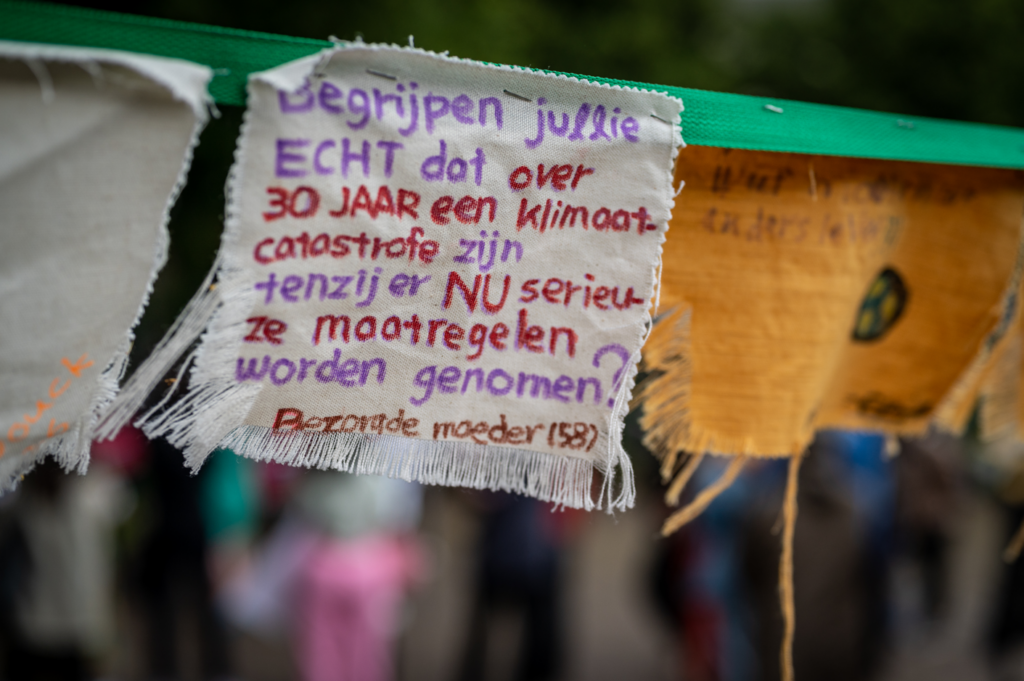 Begrijpen jullie
ECHT dat over
30 JAAR een klimaat-
catastrofe zijn
tenzij er NU serieu-
ze maatregelen
worden genomen?
Bezorgde moeder (58)
anders